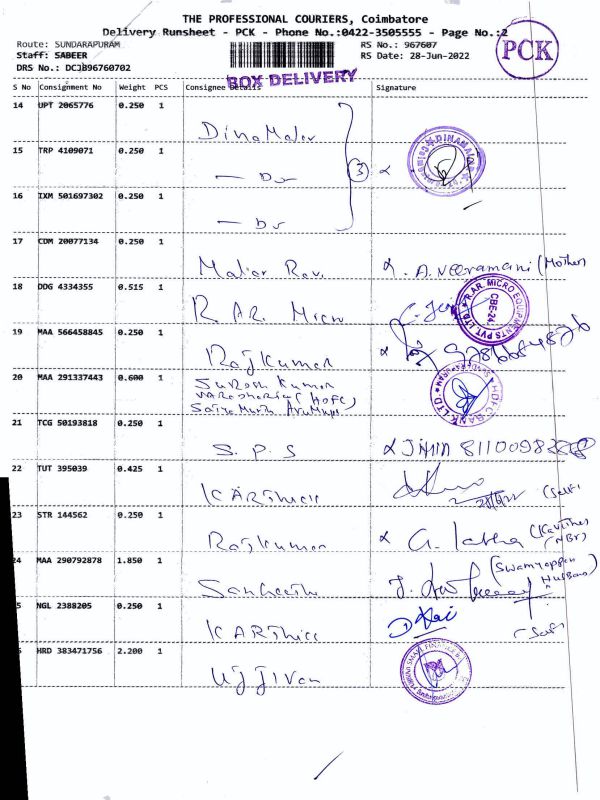 THE PROFESSIONAL COURIERS, Coimbatore
Delivery Runsheet - PCK - Phone No.:0422-3505555 - Page No.:2
Route: SUNDARAPURAM
Staff: SABEER
DRS No.: DCJ896760702
RS No.: 967607
RS Date: 28-Jun-2022
PCK
BOX DELIVERY
S No Consignment No Weight PCS Consignee Details Signature
14 UPT 2065776 0.250 1
Dinamalar
15 TRP 4109071 0.250 1
— Do
(3)
DINAMALAR
16 IXM 501697302 0.250 1
— Do
17 CDM 20077134 0.250 1
A. Veeramani (Mother)
18 DDG 4334355 0.515 1
R. AR. Micro
R.AR. MICRO EQUIPMENTS PVT. LTD.
CBE-24
19 MAA 566458845 0.250 1
Rajkumar
20 MAA 291337443 0.600 1
Suresh Kumar
(HDFC)
HDFC BANK LTD.
21 TCG 50193818 0.250 1
S. P. S
22 TUT 395039 0.425 1
KARThick
(Self)
23 STR 144562 0.250 1
Rajkumar
G. latha
(NBr)
24 MAA 290792878 1.850 1
Sangeetha
Husband
5 NGL 2388205 0.250 1
KARThick
(Self)
6 HRD 383471756 2.200 1
Ujjivan